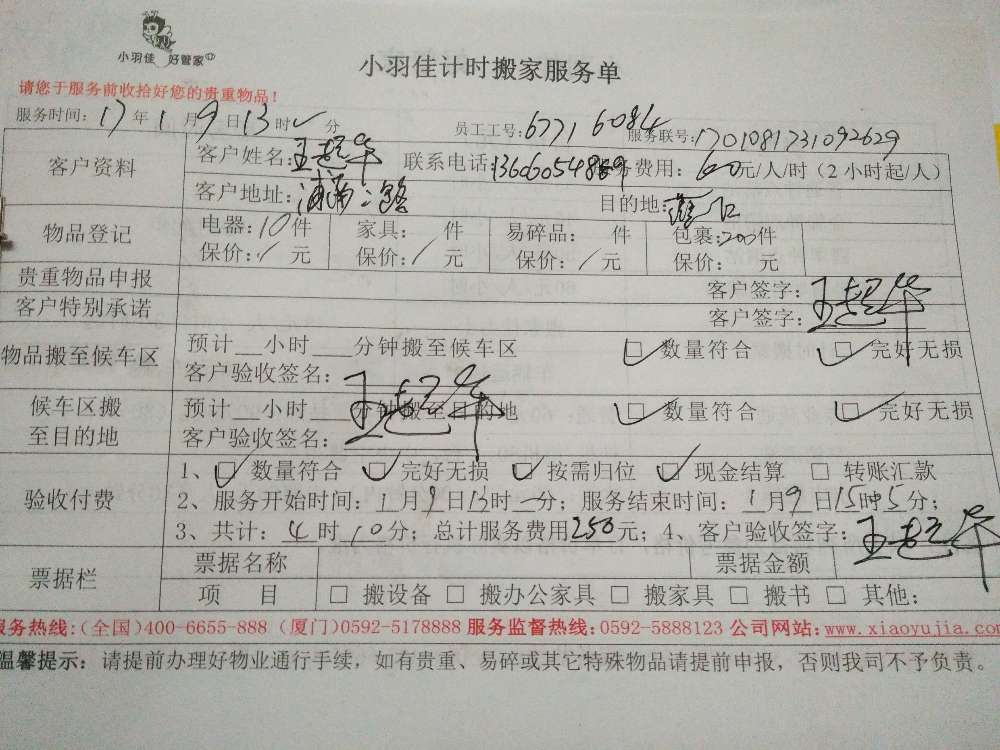 小羽佳 好管家
小羽佳计时搬家服务单
请您于服务前收拾好您的贵重物品!
服务时间: 17 年 1 月 9 日 13 时 分 员工工号: 6771 6084 服务联号: 1701081731092629
客户资料 客户姓名: 王超华 联系电话: 服务费用: 60 元/人/时 (2 小时起/人)
客户地址: 目的地:
物品登记 电器: 10 件 家具: / 件 易碎品: 件 包裹: 200 件
保价: / 元 保价: / 元 保价: / 元 保价: 元
贵重物品申报 客户签字: 王超华
客户特别承诺 客户签字:
物品搬至候车区 预计__小时___分钟搬至候车区 ☑ 数量符合 ☑ 完好无损
客户验收签名: 王超华
候车区搬至目的地 预计__小时___分钟搬至目的地 ☑ 数量符合 ☑ 完好无损
客户验收签名: 王超华
验收付费 1、☑ 数量符合 ☑ 完好无损 ☑ 按需归位 ☑ 现金结算 □ 转账汇款
2、服务开始时间: 1 月 9 日 13 时 分; 服务结束时间: 1 月 9 日 15 时 5 分;
3、共计: 4 时 10 分; 总计服务费用 250 元; 4、客户验收签字: 王超华
票据栏 票据名称 票据金额
项 目 □ 搬设备 □ 搬办公家具 □ 搬家具 □ 搬书 □ 其他:
服务热线:(全国)400-6655-888 (厦门)0592-5178888 服务监督热线:0592-5888123 公司网站:www.xiaoyujia.com
温馨提示: 请提前办理好物业通行手续, 如有贵重、易碎或其它特殊物品请提前申报, 否则我司不予负责。